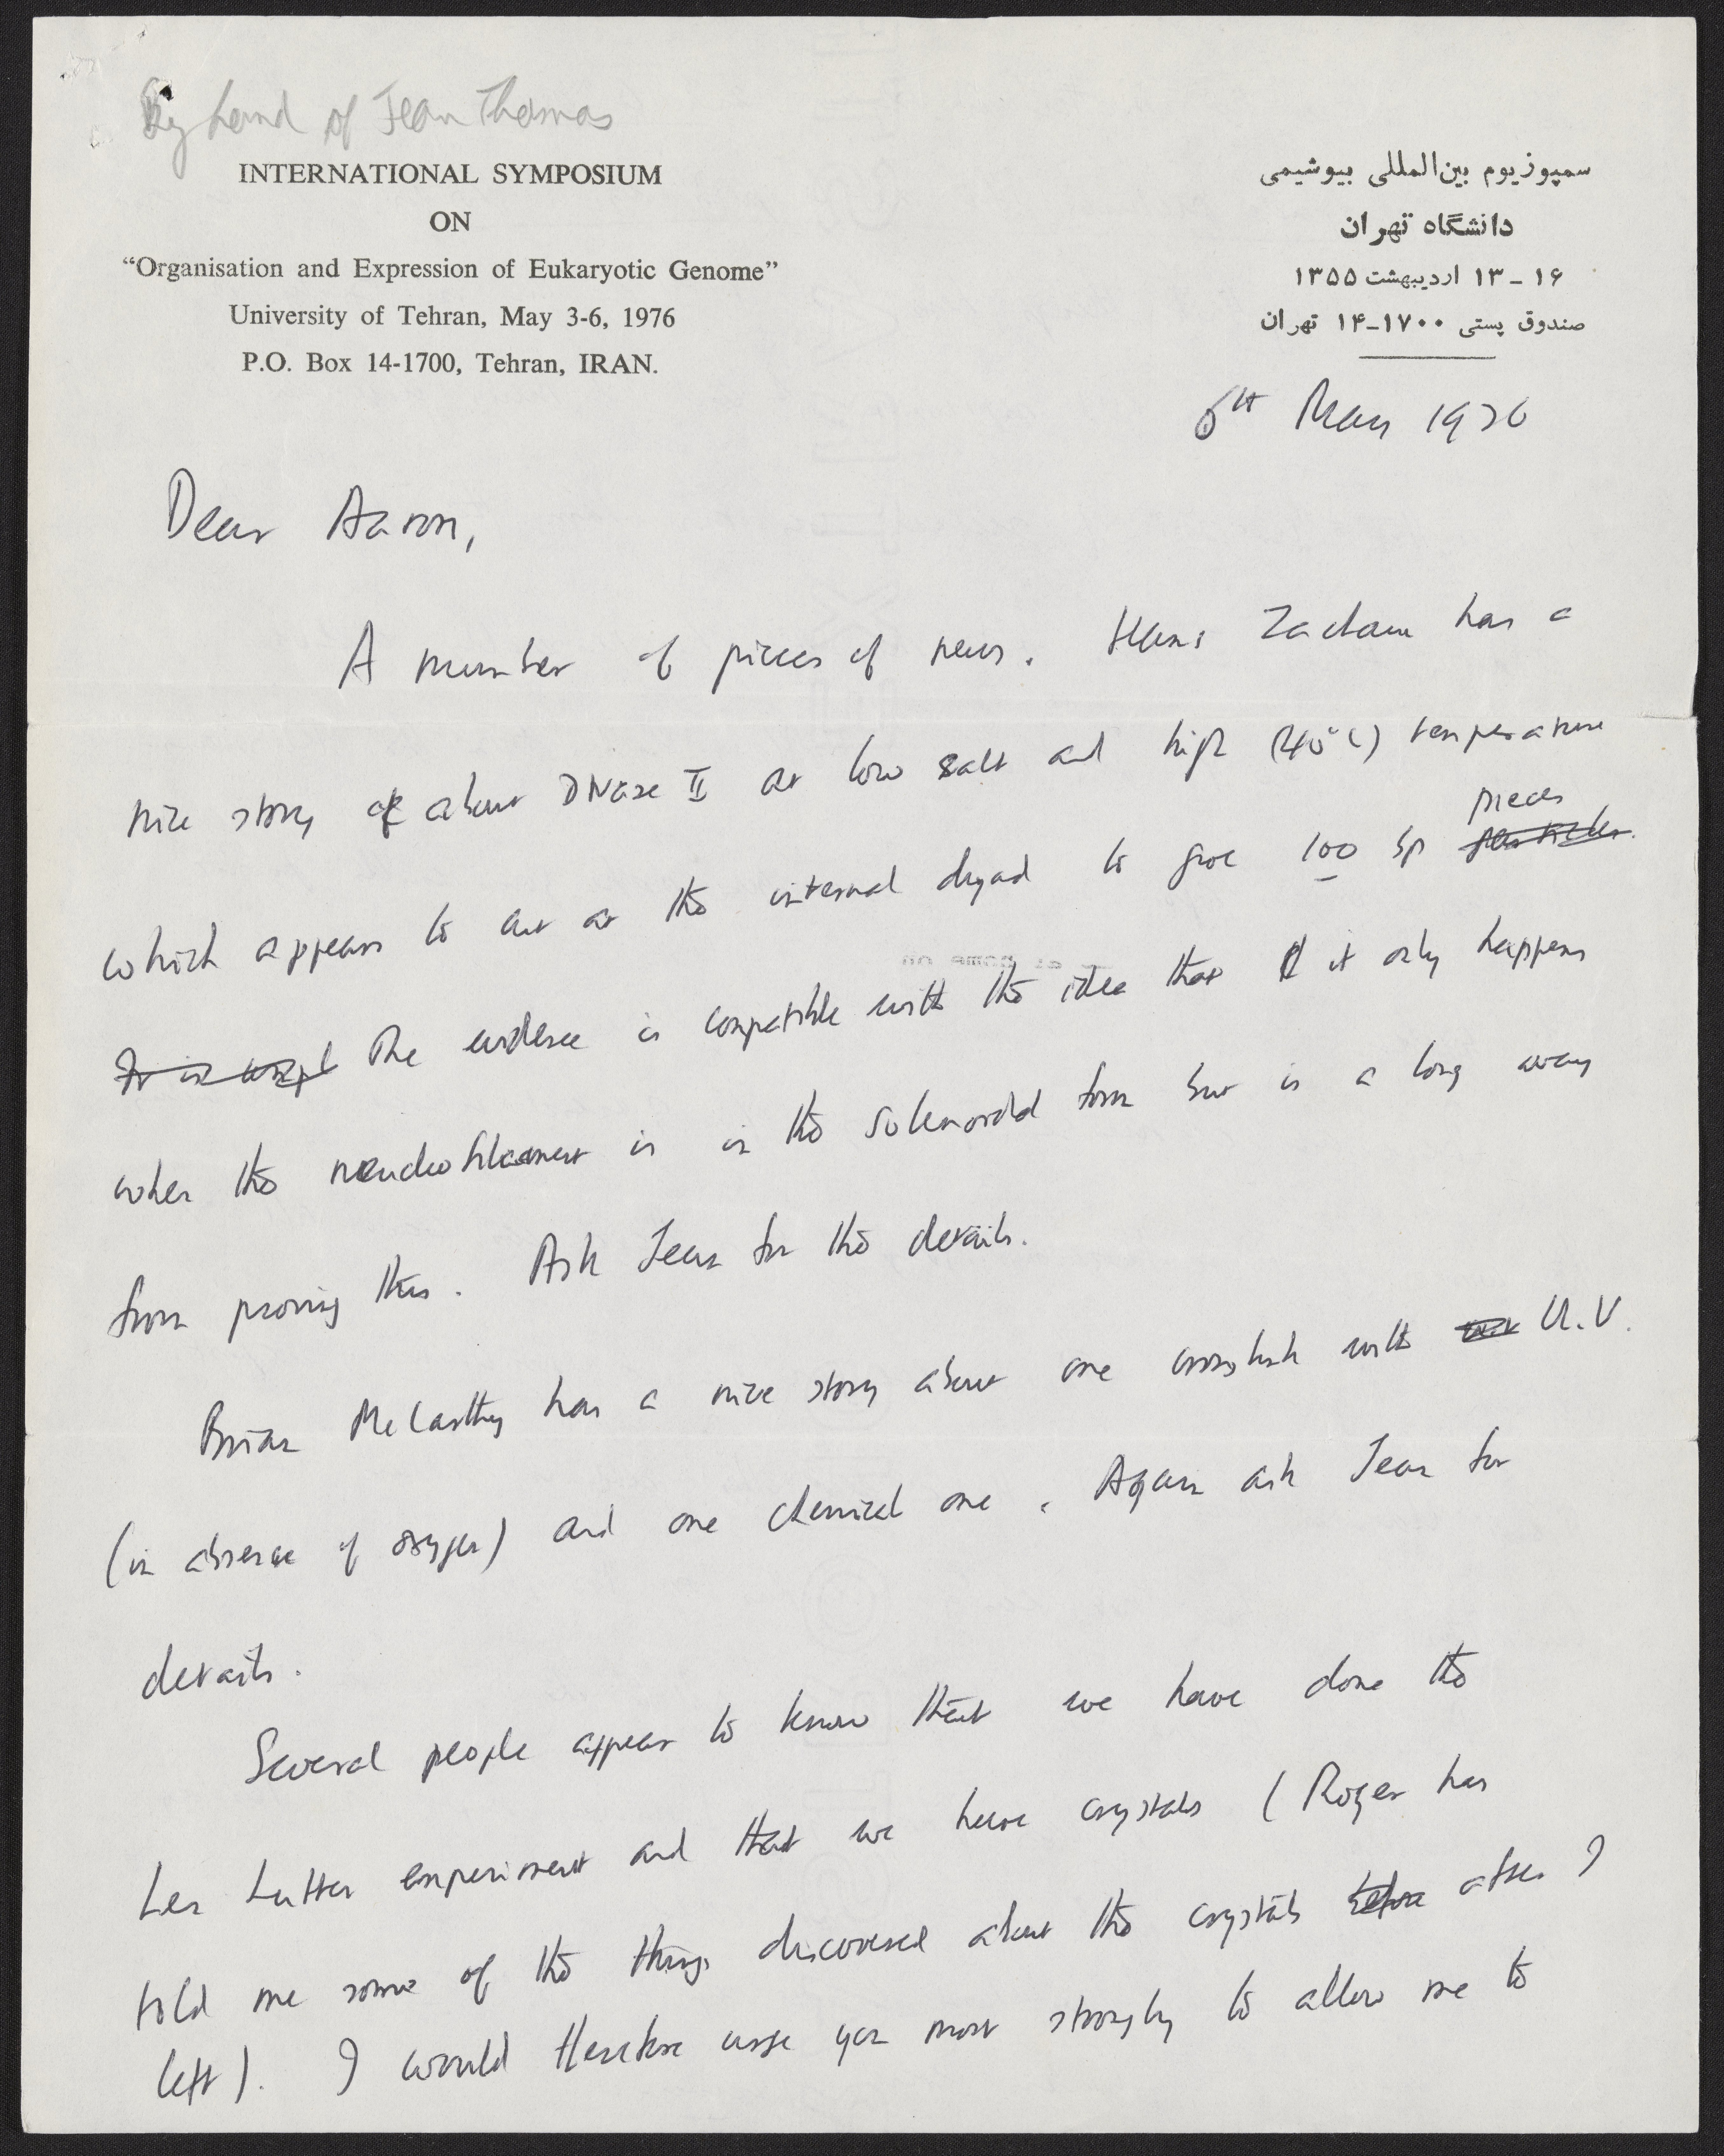 By hand of Jean Thomas
INTERNATIONAL SYMPOSIUM
ON
“Organisation and Expression of Eukaryotic Genome”
University of Tehran, May 3-6, 1976
P.O. Box 14-1700, Tehran, IRAN.
سمپوزیوم بین‌المللی بیوشیمی
دانشگاه تهران
۱۶ - ۱۳ اردیبهشت ۱۳۵۵
صندوق پستی ۱۷۰۰-۱۴ تهران
6th May 1976
Dear Aaron,
A number of pieces of news. Hans Zachau has a
nice story about DNase II at low salt and high (40°C) temperature
pieces
which appears to cut at the internal dyad to give 100 bp
The evidence is compatible with the idea that it only happens
when the nucleofilament is in the solenoidal form but is a long way
from proving this. Ask Jean for the details.
Brian McCarthy has a nice story about one crosslink with U.V.
(in absence of oxygen) and one chemical one. Again ask Jean for
details.
Several people appear to know that we have done the
Len Lutter experiment and that we have crystals (Roger has
told me some of the things discovered about the crystals before after I
left). I would therefore urge you most strongly to allow me to